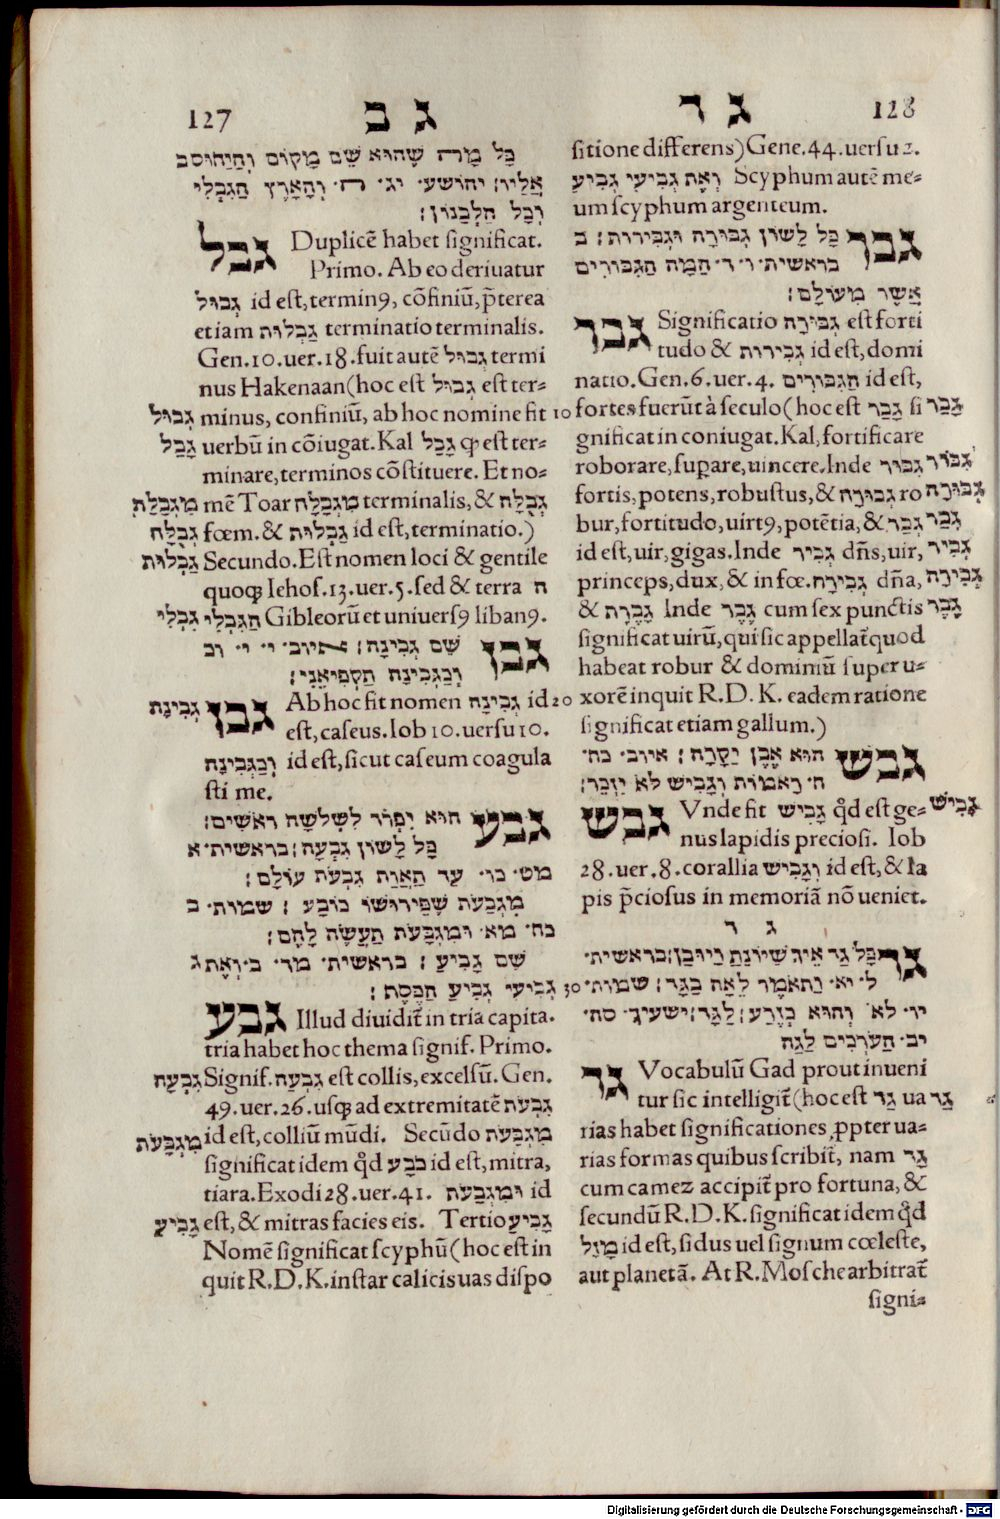 127
ג ב
כָּל מַה שֶׁהוּא שֵׁם מָקוֹם וְהַיִּחוּס ב
אֵלָיו׃ יהושע· יג· ה· וְהָאָרֶץ הַגִּבְלִי
וְכָל הַלְּבָנוֹן׃
גבל Duplicē habet significat.
Primo. Ab eo deriuatur
גְּבוּל id est, termin9, cōfiniū, p̄terea
etiam גַּבְלוּת terminatio terminalis.
Gen. 10. uer. 18. fuit autē גְּבוּל termi
nus Hakenaan (hoc est גְּבוּל est ter-
גְּבוּל minus, confiniū, ab hoc nomine fit 10
גָּבַל uerbū in cōiugat. Kal גָּבַל qꝫ est ter-
minare, terminos cōstituere. Et no-
מִגְבָּלַת mē Toar מִגְבָּלָה terminalis, & גְּבֻלָּה
גְּבֻלָּה fœm. & גַּבְלוּת id est, terminatio.)
גַּבְלוּת Secundo. Est nomen loci & gentile
quoqꝫ Iehos. 13. uer. 5. sed & terra ה
גִּבְלִי הַגִּבְלִי Gibleorū et uniuers9 liban9.
גבן שֵׁם גְּבִינָה׃ איוב· י· י· וכ
וְכַגְּבִינָה תַּקְפִּיאֵנִי׃
גְּבִינַת גבן Ab hoc fit nomen גְּבִינָה id 20
est, caseus. Iob 10. uersu 10.
וְכַגְּבִינָה id est, sicut caseum coagula
sti me.
גבע הוּא יִפְרֹד לִשְׁלֹשָׁה רָאשִׁים׃
כָּל לָשׁוֹן גִּבְעָה׃ בראשית· א
מט· כו· עַד תַּאֲוַת גִּבְעֹת עוֹלָם׃
מִגְבָּעֹת שֶׁפֵּירוּשׁוֹ כּוֹבַע׃ שמות· ב
כח· מא· וּמִגְבָּעֹת תַּעֲשֶׂה לָהֶם׃
שֵׁם גָּבִיעַ׃ בראשית· מד· ב· וְאֶת ג
גְּבִיעִי גְּבִיעַ הַכֶּסֶף׃ 30
גבע Illud diuidit̄ in tria capita.
tria habet hoc thema signif. Primo.
גִּבְעָה Signif. גִּבְעָה est collis, excelsū. Gen.
49. uer. 26. usqꝫ ad extremitatē גִּבְעֹת
מִגְבָּעֹת id est, colliū mūdi. Secūdo מִגְבָּעֹת
significat idem qd̄ כֹּבַע id est, mitra,
tiara. Exodi 28. uer. 41. וּמִגְבָּעֹת id
גָּבִיעַ est, & mitras facies eis. Tertio גָּבִיעַ
Nomē significat scyphū (hoc est in
quit R. D. K. instar calicis uas dispo
ג ד
128
sitione differens) Gene. 44. uersu 2.
וְאֶת גְּבִיעִי גְּבִיעַ Scyphum autē me-
um scyphum argenteum.
גבר כָּל לָשׁוֹן גְּבוּרָה וּגְבִירוּת׃ ב
בראשית· ו· ד· הֵמָּה הַגִּבּוֹרִים
אֲשֶׁר מֵעוֹלָם׃
גבר Significatio גְּבוּרָה est forti
tudo & גְּבִירוּת id est, domi
natio. Gen. 6. uer. 4. הַגִּבּוֹרִים id est,
fortes fuerūt à seculo (hoc est גָּבַר si גָּבַר
gnificat in coniugat. Kal, fortificare
roborare, suꝑare, uincere. Inde גִּבּוֹר גִּבּוֹר
fortis, potens, robustus, & גְּבוּרָה ro גְּבוּרָה
bur, fortitudo, uirt9, potētia, & גְּבַר גְּבַר
id est, uir, gigas. Inde גְּבִיר dn̄s, uir, גְּבִיר
princeps, dux, & in fœ. גְּבִירָה dn̄a, גְּבִירָה
& גְּבֶרֶת Inde גֶּבֶר cum sex punctis גֶּבֶר
significat uirū, qui sic appellat̄ quod
habeat robur & dominiū super u-
xorē inquit R. D. K. eadem ratione
significat etiam gallum.)
גבש הוּא אֶבֶן יְקָרָה׃ איוב· כח·
ח· רָאמוֹת וְגָבִישׁ לֹא יִזָּכֵר׃
גבש Vnde fit גָּבִישׁ qd̄ est ge- גָּבִישׁ
nus lapidis preciosi. Iob
28. uer. 8. corallia וְגָבִישׁ id est, & la
pis p̄ciosus in memoriā nō ueniet.
ג ד
גד כָּל גַד אֵיךְ שֶׁיִּוָּנֵה וְיוּבַן׃ בראשית·
ל· יא· וַתֹּאמֶר לֵאָה בָּגָד׃ שמות·
יו· לא· וְהוּא כְּזֶרַע׃ לַגָּד׃ ישעיך· סה·
יב· הַעֹרְכִים לַגַּד
גד Vocabulū Gad prout inueni
tur sic intelligit̄ (hoc est גַּד ua גַּד
rias habet significationes, ꝓpter ua-
rias formas quibus scribit̄, nam גָּד
cum camez accipit̄ pro fortuna, &
secundū R. D. K. significat idem qd̄
מַזָּל id est, sidus uel signum cœleste,
aut planetā. At R. Mosche arbitrat̄
signi-
Digitalisierung gefördert durch die Deutsche Forschungsgemeinschaft - DFG